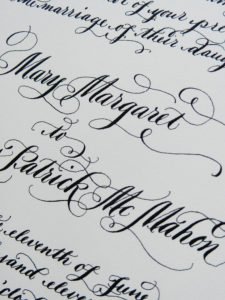 of your pre
the marriage of their dau
Mary Margaret
to
Patrick Mc Mahon
eleventh of June
sand eleven